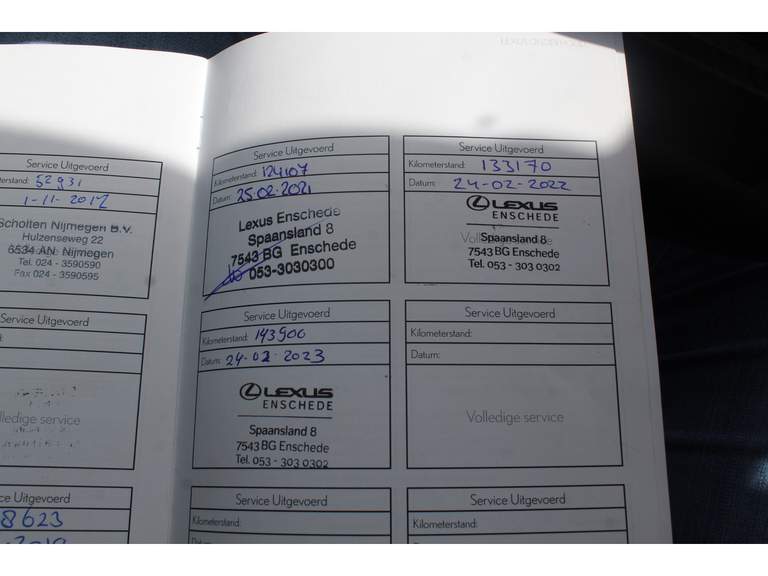 Service Uitgevoerd
52931
1-11-2017
Scholten Nijmegen B.V.
Hulzenseweg 22
6534 AN Nijmegen
Tel. 024 - 3590590
Fax 024 - 3590595
Service Uitgevoerd
Volledige service
Service Uitgevoerd
8623
Service Uitgevoerd
Kilometerstand: 124107
Datum: 25-02-2021
Lexus Enschede
Spaansland 8
7543 BG Enschede
053-3030300
Service Uitgevoerd
Kilometerstand: 133170
Datum: 24-02-2022
LEXUS
ENSCHEDE
Spaansland 8
7543 BG Enschede
Tel. 053 - 303 0302
Service Uitgevoerd
Kilometerstand: 143900
Datum: 24-02-2023
LEXUS
ENSCHEDE
Spaansland 8
7543 BG Enschede
Tel. 053 - 303 0302
Service Uitgevoerd
Kilometerstand:
Datum:
Volledige service
Service Uitgevoerd
Kilometerstand:
Service Uitgevoerd
Kilometerstand:
Datum: